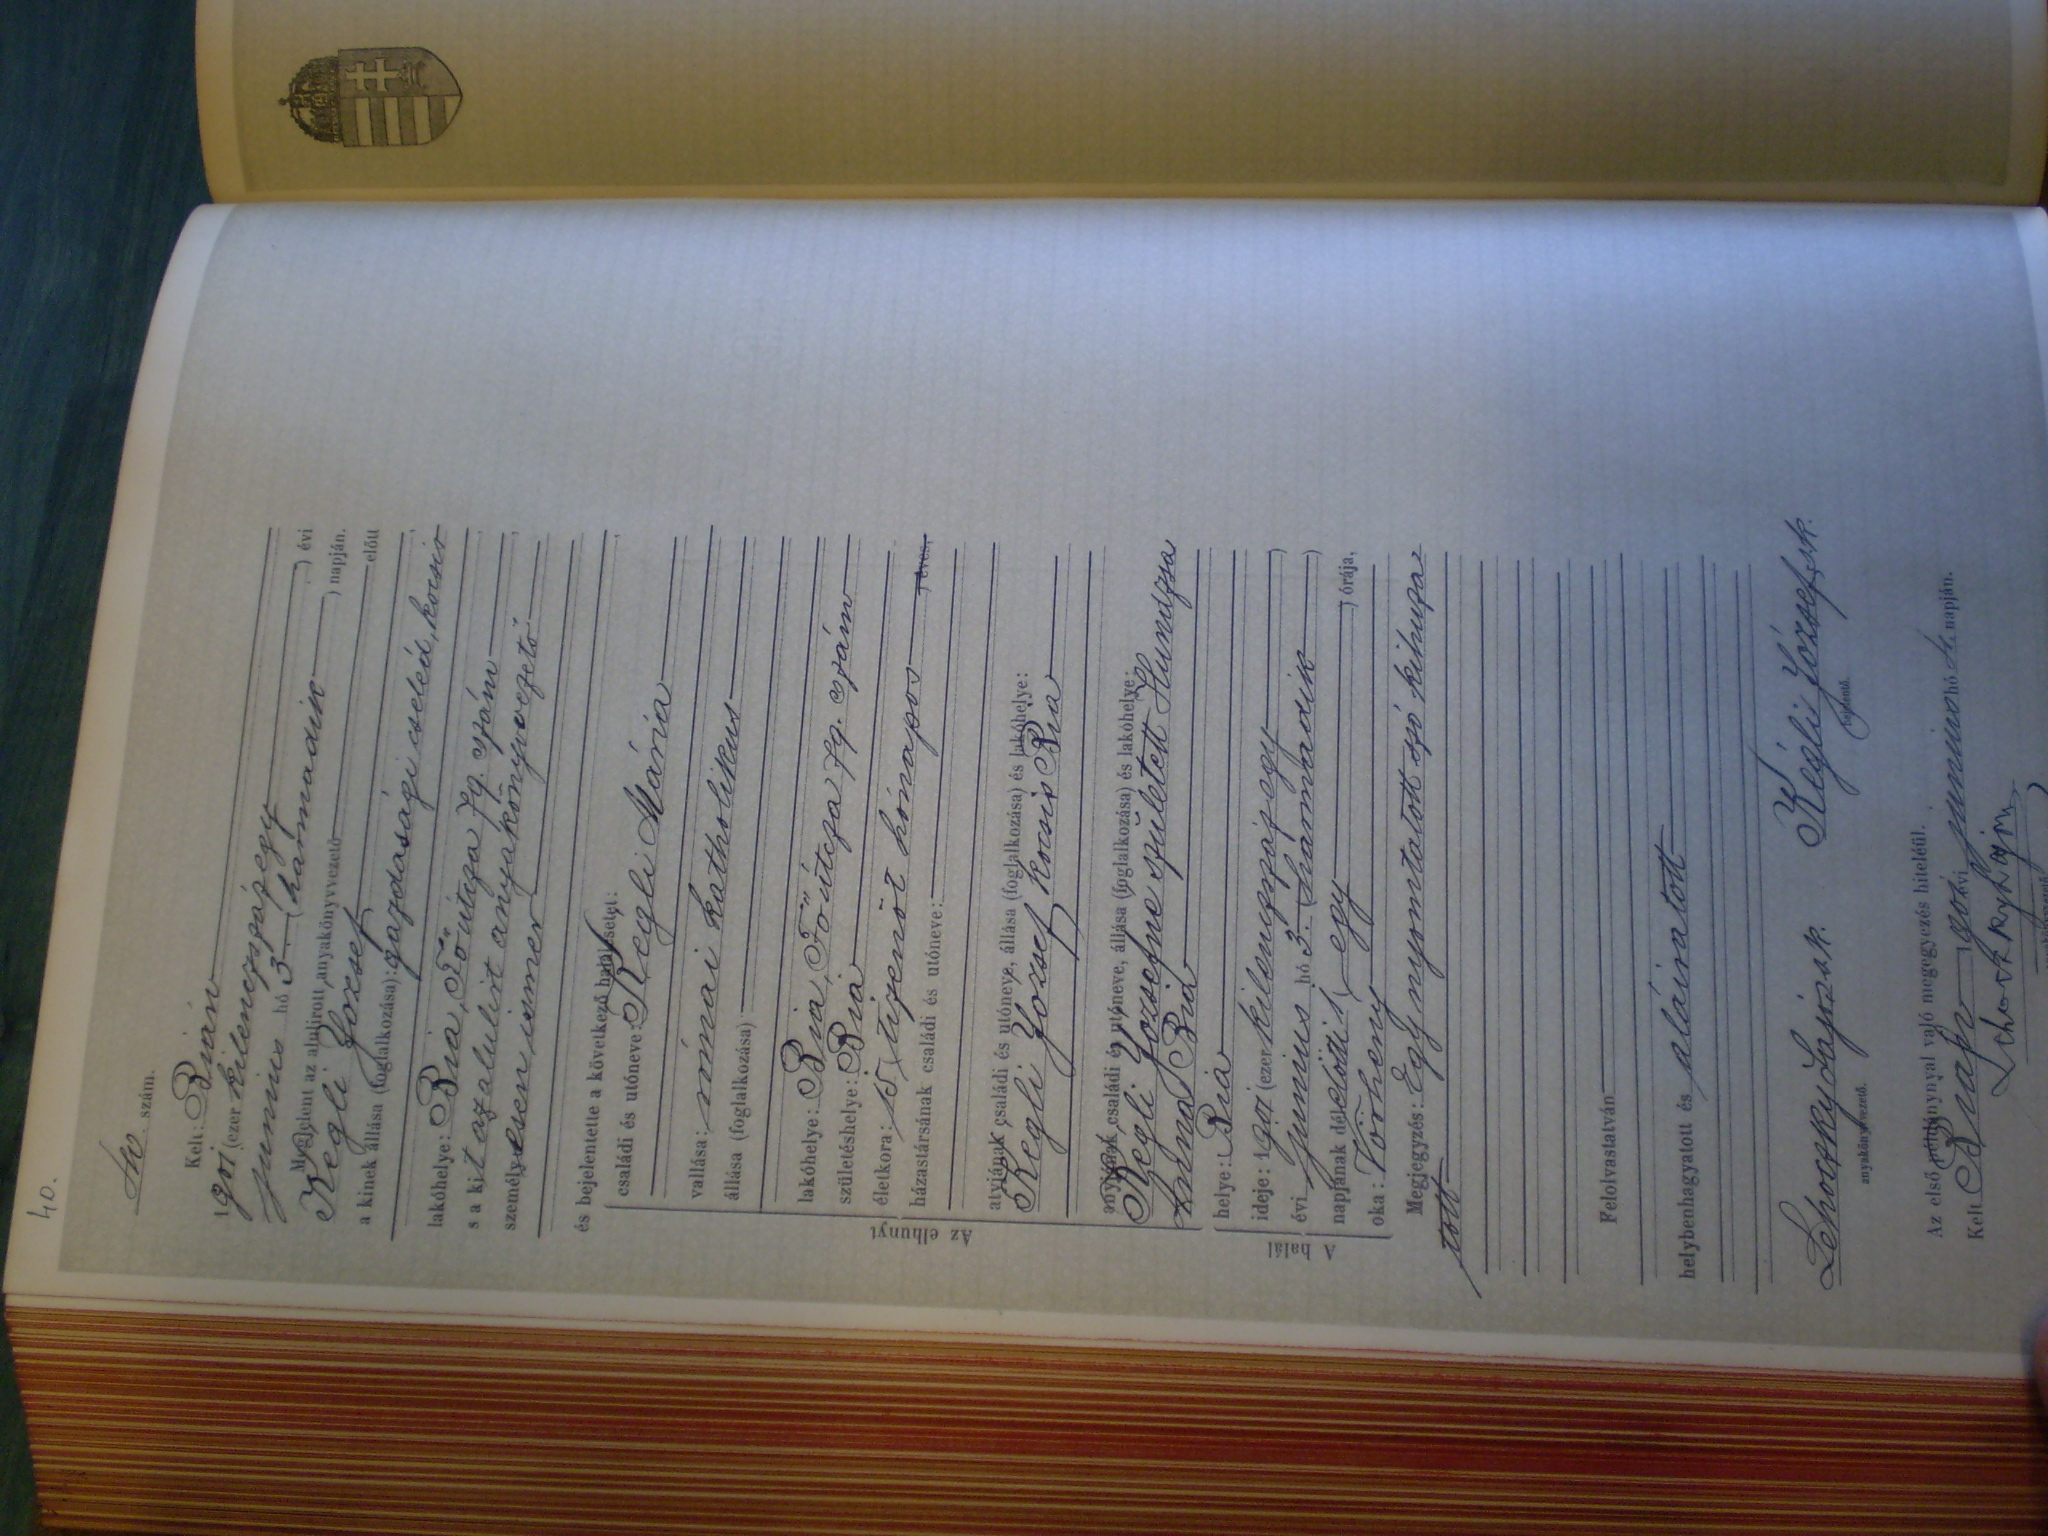 40.
40. szám.
Kelt: Bián
1901 (ezer kilenczszáz egy) évi
junius hó 3. (harmadik) napján.
Megjelent az alulirott anyakönyvvezető előtt
Regli József
a kinek állása (foglalkozása): gazdasági cseléd, kocsis
lakóhelye: Bia, Fő útcza 79. szám
s a kit az alulirt anyakönyvvezető
személyesen ismer
és bejelentette a következő halálesetet:
Az elhunyt
családi és utóneve: Regli Mária
vallása: római katholikus
állása (foglalkozása):
lakóhelye: Bia, Fő útcza 79. szám
születéshelye: Bia
életkora: 15 (tizenöt hónapos) éves,
házastársának családi és utóneve:
atyjának családi és utóneve, állása (foglalkozása) és lakóhelye:
Regli József kocsis Bia
anyjának családi és utóneve, állása (foglalkozása) és lakóhelye:
Regli Józsefné született
Anna Bia
A halál
helye: Bia
ideje: 1901 (ezer kilenczszáz egy)
évi junius hó 3. (harmadik)
napjának délelőtti 1 (egy) órája,
oka: Vörheny
Megjegyzés: Egy nyomtatott szó kihuza-
tott
Felolvastatván
helybenhagyatott és aláiratott
Lehoczky Lajos s.k.
anyakönyvvezető.
Régli József, s.k.
bejelentő.
Az első példánynyal való megegyezés hiteléül.
Kelt Bián, 1901 évi junius hó 4. napján.
Lehoczky Lajos